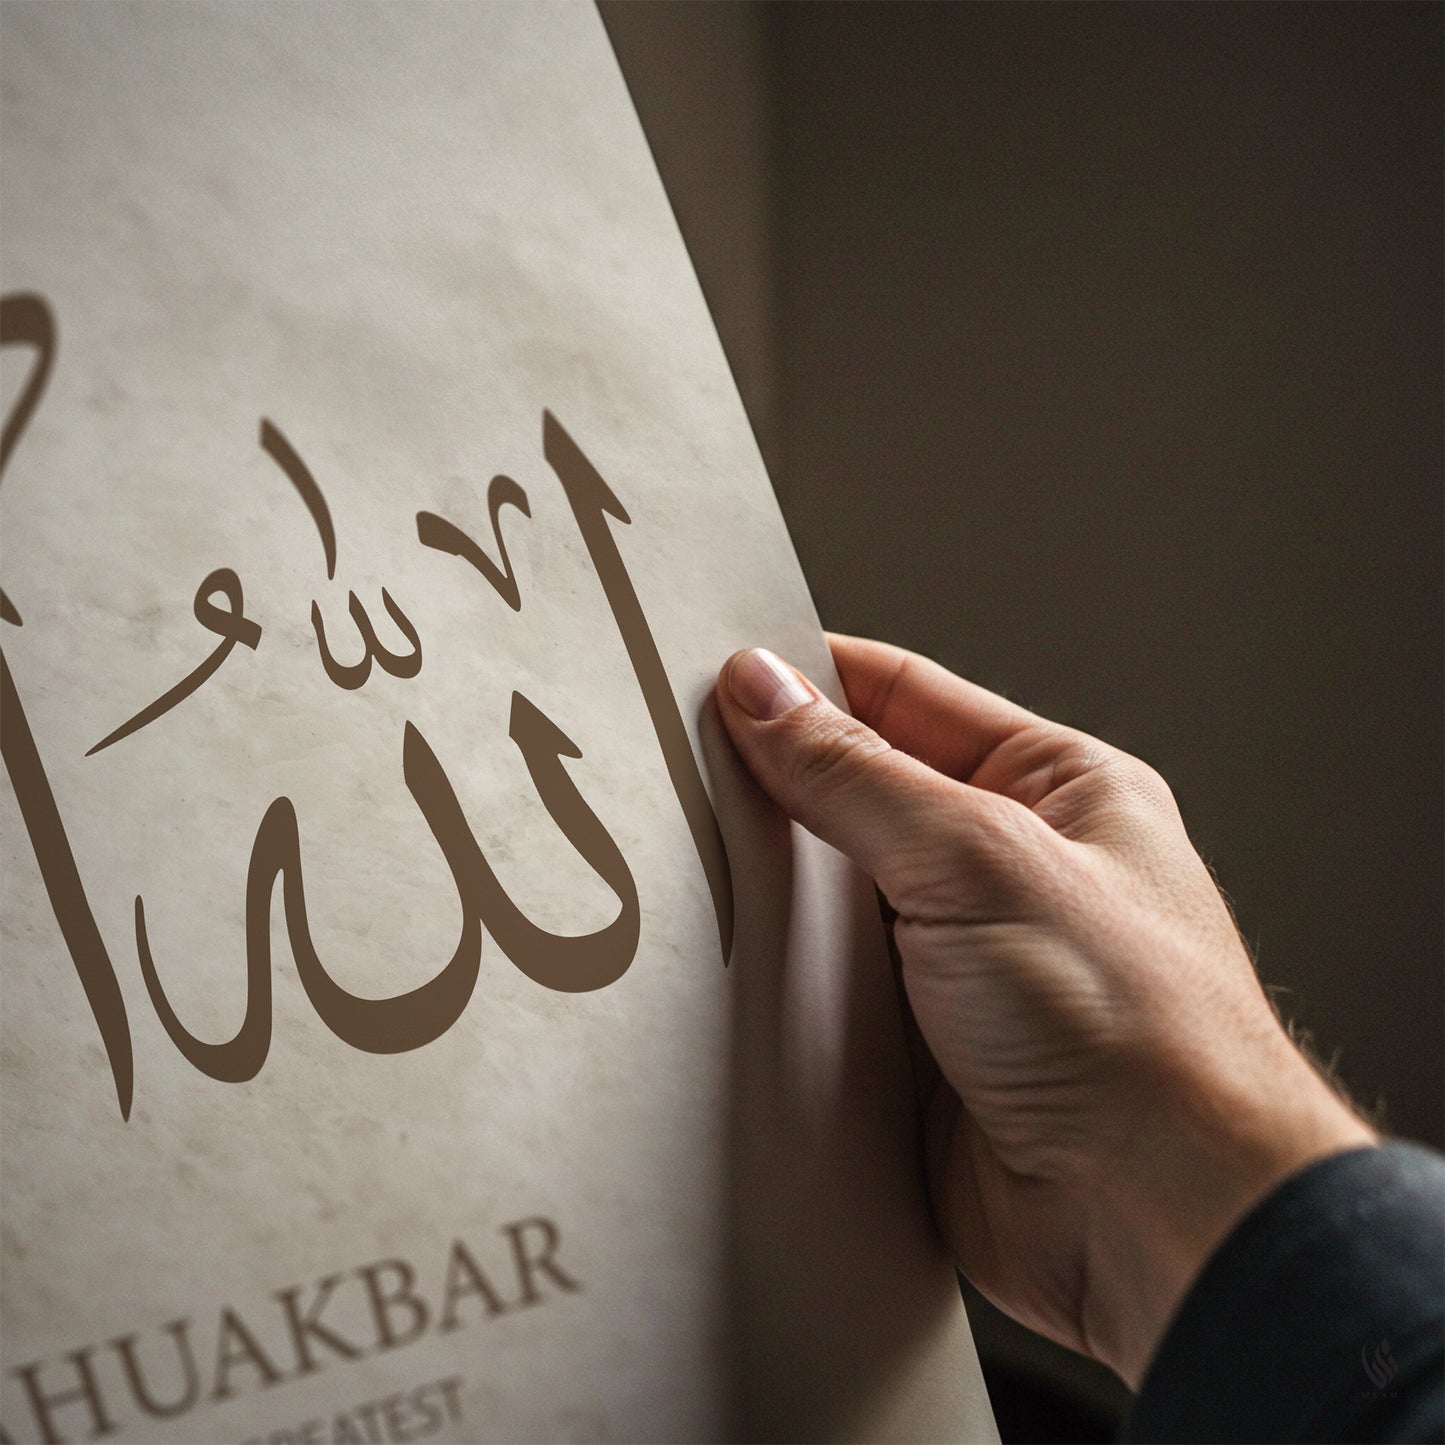 اللّٰهُ
AHUAKBAR
GREATEST